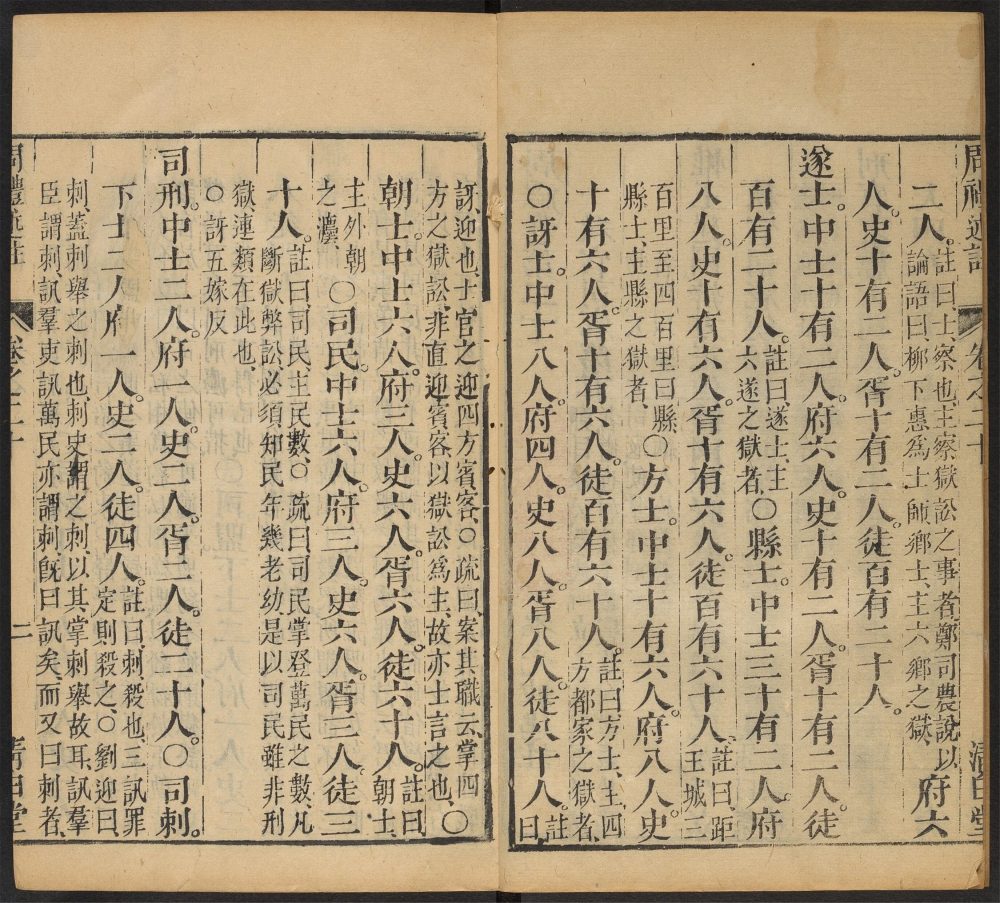 周禮述註 卷之二十 清白堂
二人。註曰士察也主察獄訟之事者鄭司農說以
論語曰柳下惠爲士師鄉士主六鄉之獄 府六
人。史十有二人。胥十有二人。徒百有二十人。
遂士。中士十有二人。府六人。史十有二人。胥十有二人。徒
百有二十人。註曰遂士主
六遂之獄者 ○縣士。中士三十有二人。府
八人。史十有六人。胥十有六人。徒百有六十人。註曰距
王城三
百里至四百里曰縣
縣士主縣之獄者 ○方士。中士十有六人。府八人。史
十有六人。胥十有六人。徒百有六十人。註曰方士主四
方都家之獄者
○訝士。中士八人。府四人。史八人。胥八人。徒八十人。註
曰
訝迎也士官之迎四方賓客○疏曰案其職云掌四
方之獄訟非直迎賓客以獄訟爲主故亦士言之也 ○
朝士。中士六人。府三人。史六人。胥六人。徒六十人。註曰
朝士
主外朝
之灋 ○司民。中士六人。府三人。史六人。胥三人。徒三
十人。註曰司民主民數○疏曰司民掌登萬民之數凡
斷獄弊訟必須知民年幾老幼是以司民雖非刑
獄連類在此也
○訝五嫁反
司刑。中士二人。府一人。史二人。胥二人。徒二十人。○司刺。
下士二人。府一人。史二人。徒四人。註曰刺殺也三訊罪
定則殺之○劉迎曰
刺蓋刺舉之刺也刺史謂之刺以其掌刺舉故耳訊羣
臣謂刺訊羣吏訊萬民亦謂刺旣曰訊矣而又曰刺者
周禮述註 卷之二十 二 清白堂